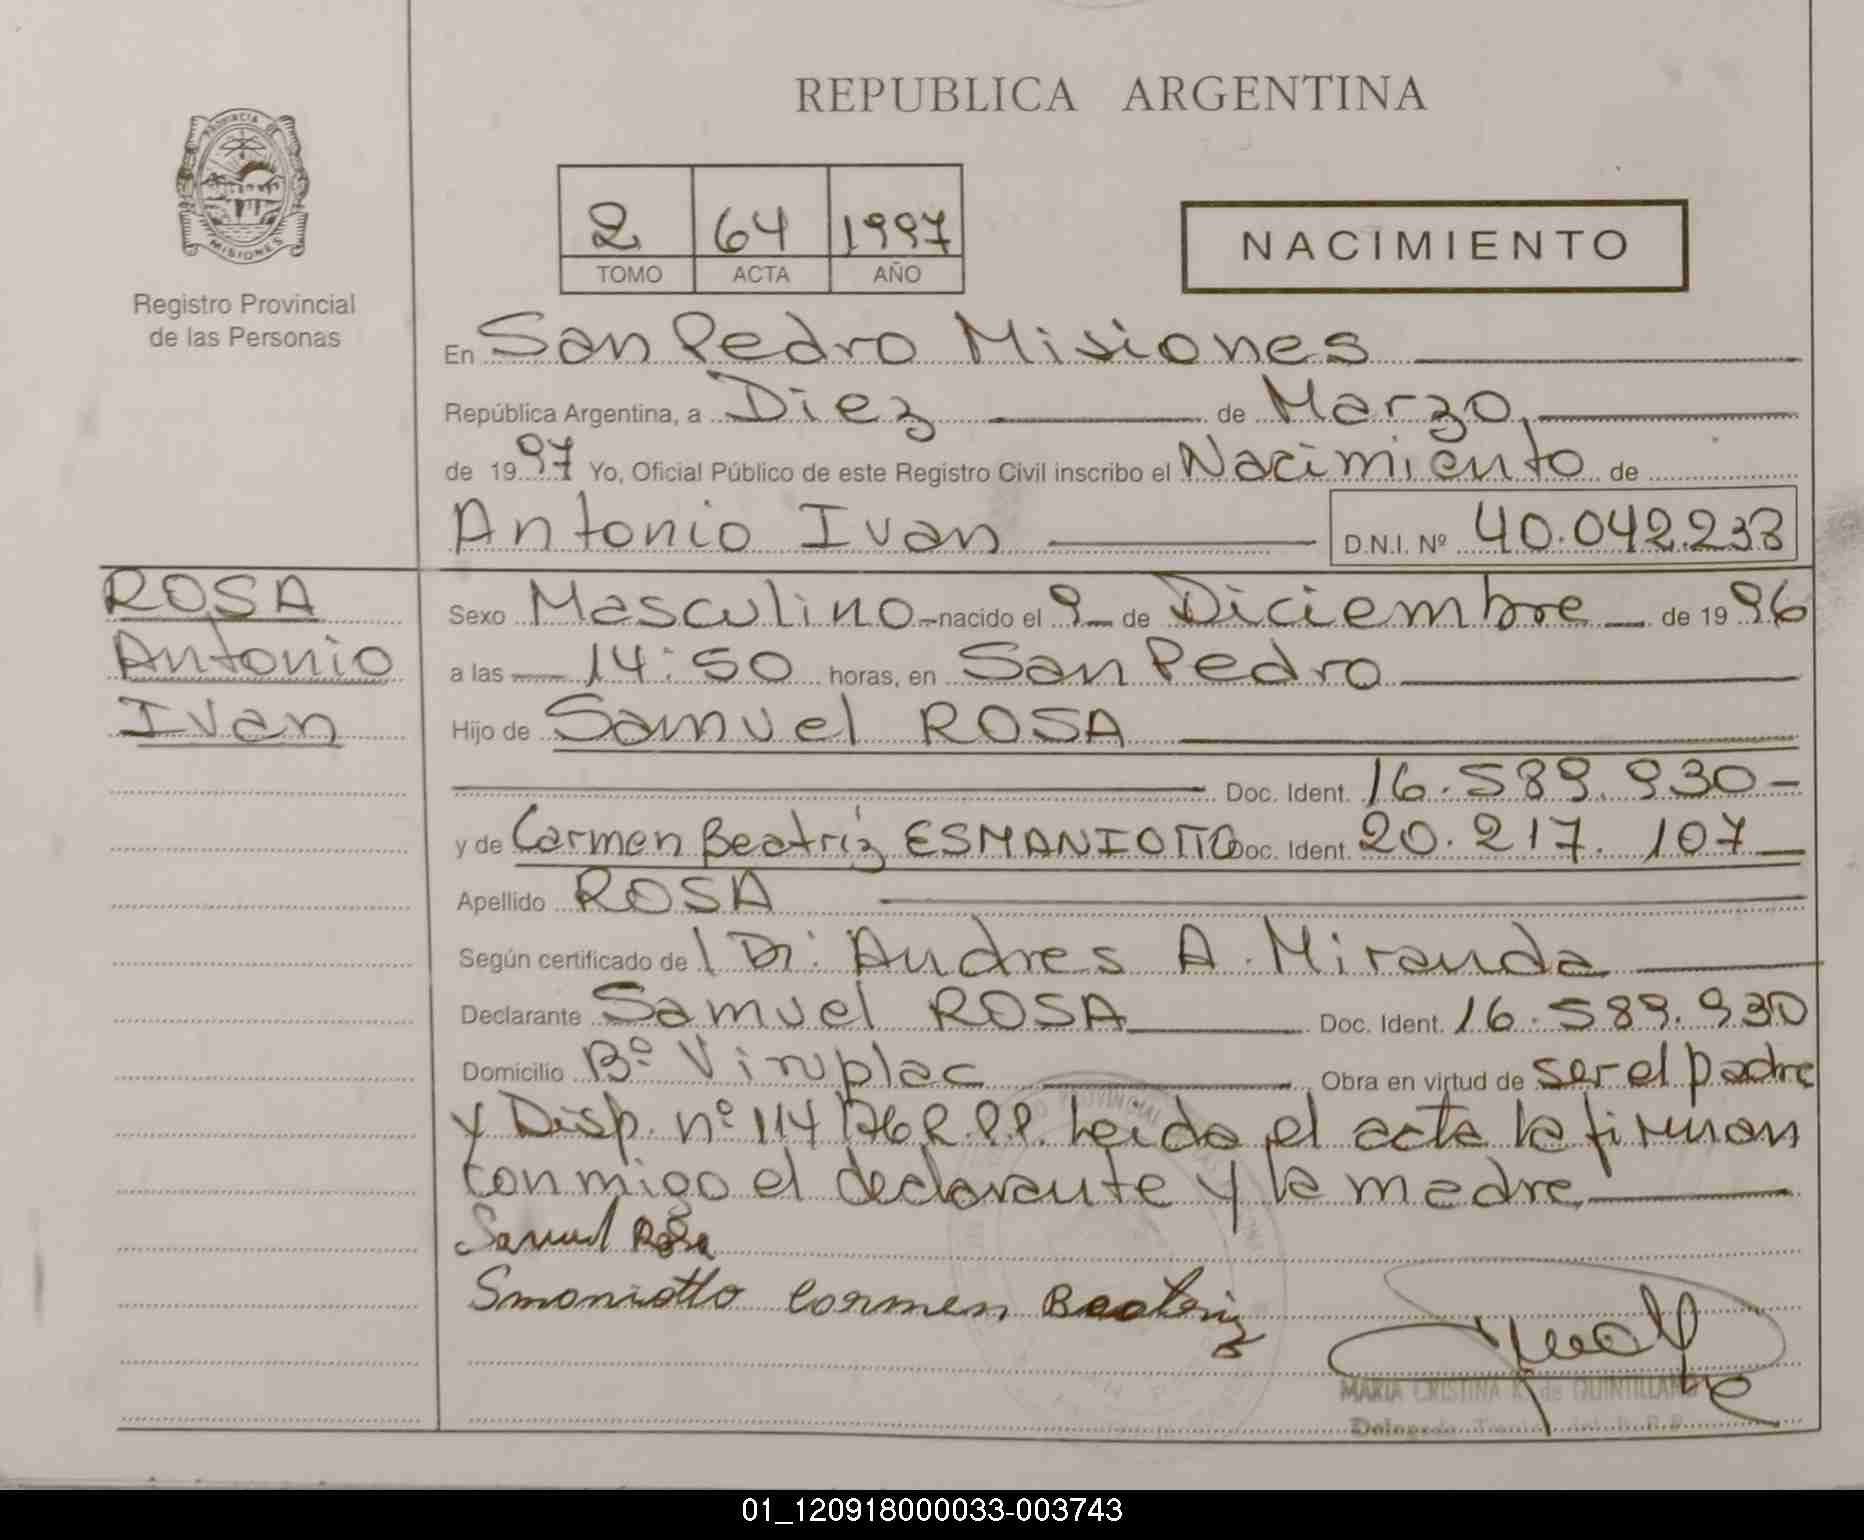 REPUBLICA ARGENTINA
PROVINCIA DE
MISIONES
Registro Provincial
de las Personas
2 64 1997
TOMO ACTA AÑO
NACIMIENTO
En San Pedro Misiones
República Argentina, a Diez de Marzo
de 1997 Yo, Oficial Público de este Registro Civil inscribo el Nacimiento de
Antonio Ivan D.N.I. Nº 40.042.233
ROSA
Antonio
Ivan
Sexo Masculino nacido el 9 de Diciembre de 1996
a las 14:50 horas, en San Pedro
Hijo de Samuel ROSA
Doc. Ident. 16.589.930
y de Carmen Beatriz ESMANIOTTO Doc. Ident. 20.217.107
Apellido ROSA
Según certificado del Dr. Andres A. Miranda
Declarante Samuel ROSA Doc. Ident. 16.589.930
Domicilio Bº Viruplac Obra en virtud de ser el padre
y Disp. nº 114/76 R.P.P. Leida el acta la firman
conmigo el declarante y la madre
Samuel Rosa
Smaniotto Carmen Beatriz
MARIA CRISTINA K. de QUINTILLAN
01_120918000033-003743